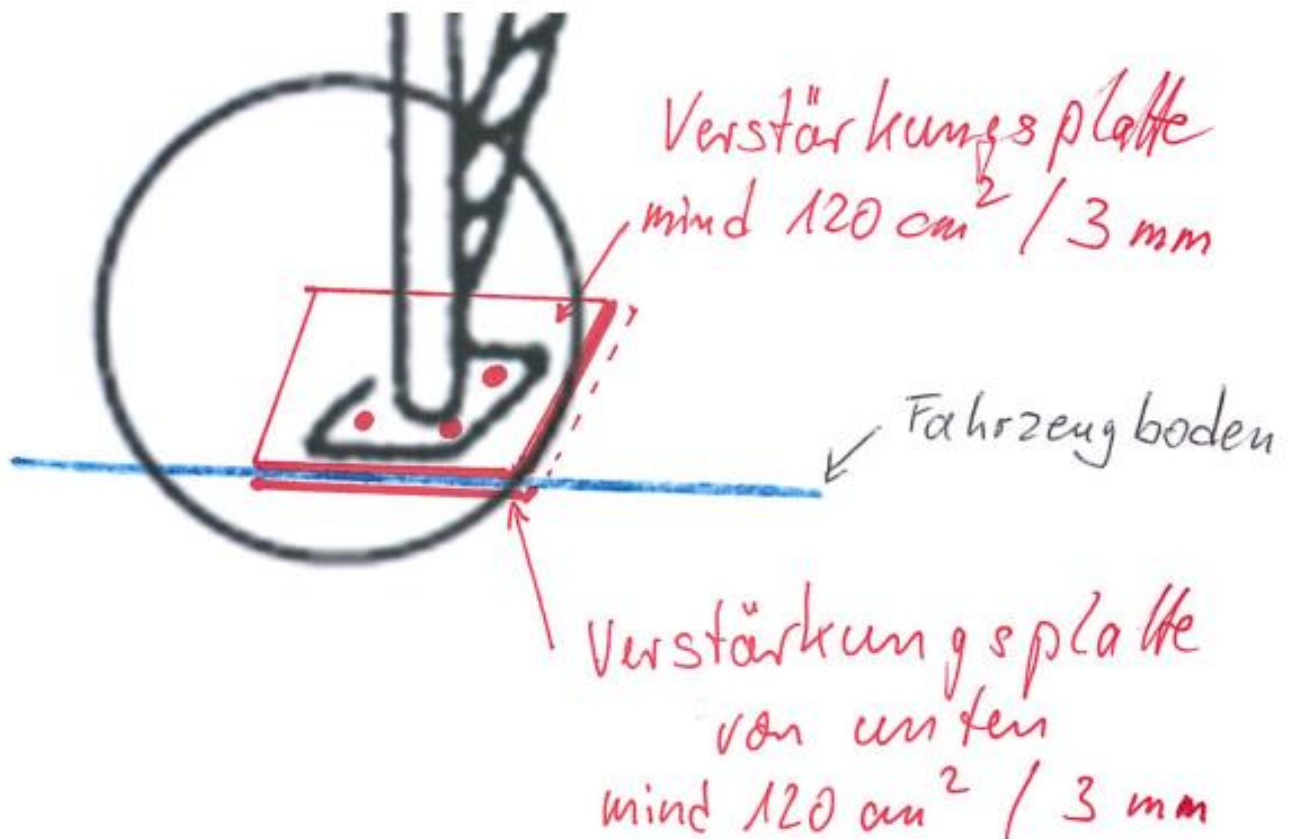 Verstärkungsplatte
mind 120 cm² / 3 mm
Fahrzeugboden
Verstärkungsplatte
von unten
mind 120 cm² / 3 mm